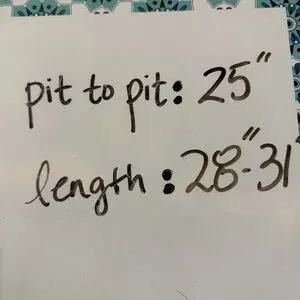 pit to pit: 25"
length: 28"-31"